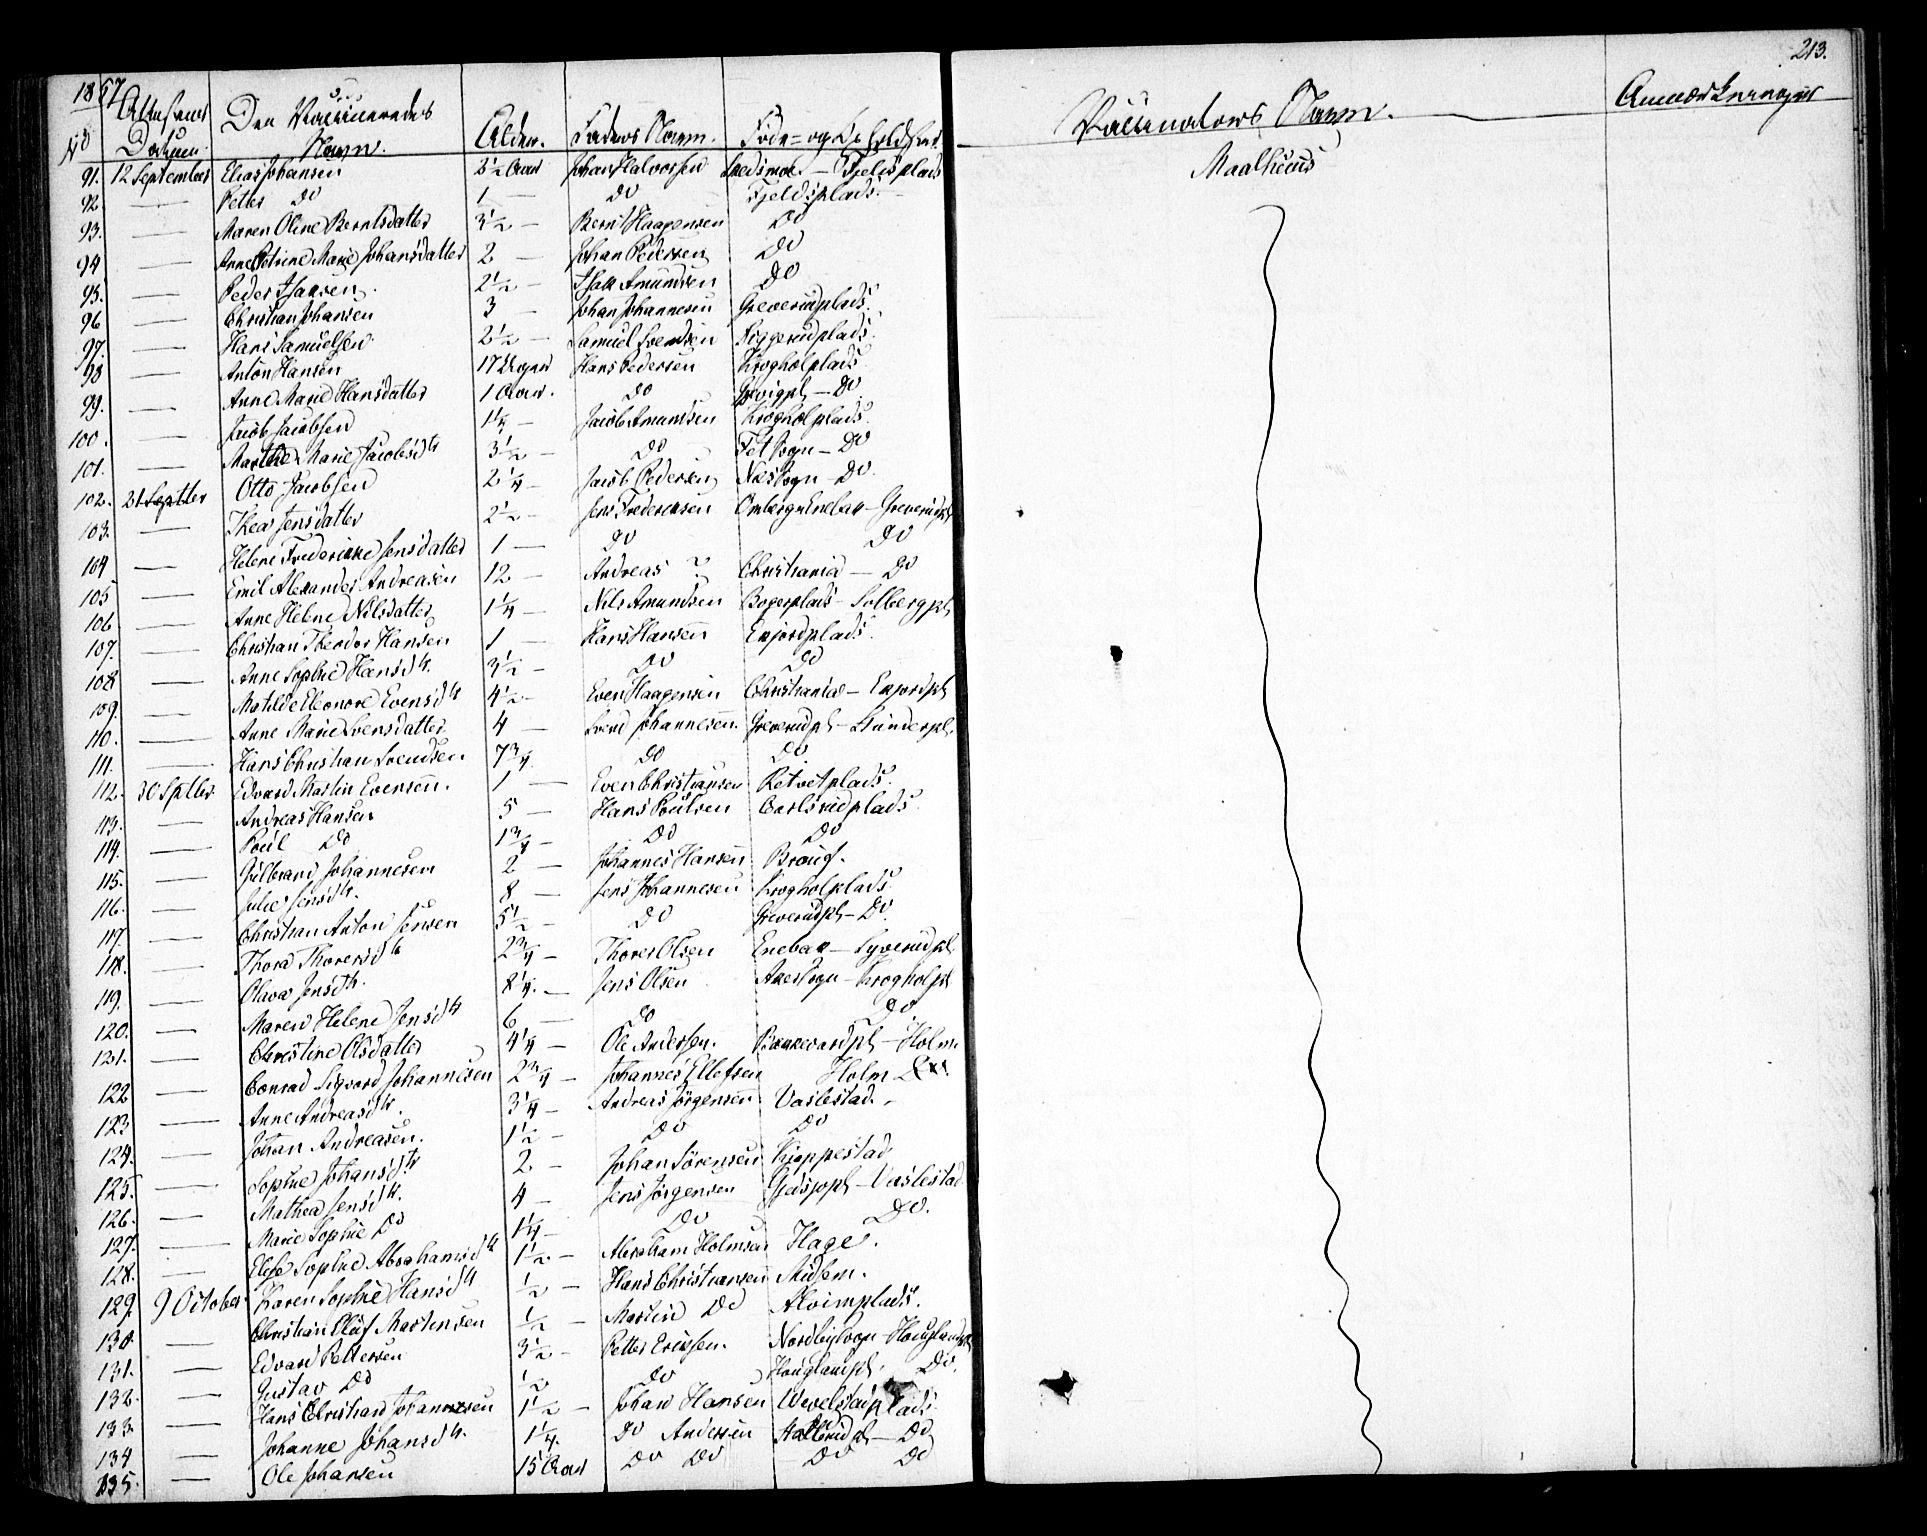 213.
1857
No Attestens Datum. Den Vaccineredes Navn. Alder. Faders Navn. Føde- og Opholdssted. Vaccinatørs Navn. Anmærkninger
91. 12 September Elias Johansen 2½ Aar Johan Halvorsen Skedsmoe – Fjeldsplads Maalhuus
92. — Petter Do 1 — Do Fjeldsplads. —
93. — Maren Oline Berntsdatter 3½ — Bernt Haagensen Do
94 — Anne Petrine Marie Johansdatter 2 — Johan Pedersen Do
95. — Peder Isaksen. 2½ — Isak Amundsen Do
96 — Christian Johansen 3 — Johan Johannesen Greverudplads.
97. — Hans Samuelsen 2½ — Samuel Svendsen Siggerudplads.
98 — Anton Hansen 17 Uger Hans Pedersen Krogholplads
99. — Anne Marie Hansdatter 1 Aar. Do – Do
100. — Jacob Jacobsen 1¼ — Jacob Amundsen Krogholplads.
101. — Marthe Marie Jacobsdtr 3½ — Do Fet Sogn – Do
102. 21 Septbr Otto Jacobsen 2¼ — Jacob Pedersen Næs Sogn – Do.
103. — Thea Jensdatter 2½ — Jens Frederiksen Enebak – Greverudpl
104 — Helene Frederikke Jensdatter 1 — Do Do
105 — Emil Alexander Andreasen 12 — Andreas ? Christiania — Do
106 — Anne Helene Nilsdatter 1¼ — Nils Amundsen Bogerplads – Solbergpl
107. — Christian Theodor Hansen 1 — Hans Hansen Enjordplads.
108 — Anne Sophie Hansdtr. 3½ — Do Do
109. — Matilde Eleonore Evensdtr 4½ — Even Haagensen Christiania – Enjordpl
110. — Anne Marie Svensdatter 4 — Svend Johannesen. Greverudpl –
111. — Hans Christian Svendsen 7¾. Do Do
112. 30 Sptbr. Edvard Martin Evensen. 1 — Even Christiansen Retvetplads.
113. — Andreas Hansen 5 — Hans Poulsen Carlsrudplads
114. — Poul Do 1¾ — Do Do
115. — Gulbrand Johannesen 2 — Johannes Hansen
116. — Julie Jensdtr. 8 — Jens Johannesen Krogholplads
117. — Christian Anton Jensen 5½ — Do Greverudpl – Do
118. — Thora Thorersdtr 2¾ — Thorer Olsen Enebak – Syverudpl.
119. — Olava Jensdtr. 8¼. — Jens Olsen Aker Sogn – Krogholpl
120. — Maren Helene Jensdtr 6 — Do Do
121. — Christine Olsdatter 4¼ — Ole Andersen. – Holm
122 — Conrad Sigvard Johannesen 2¾ — Johannes Ellefsen Holm
123 — Anne Andreasdtr. 3¼ — Andreas Jørgensen Vaslestad. –
124. — Johan Andreasen. 1½ — Do Do
125. — Sophie Johansdtr 2 — Johan Sørensen Kjeppestad
126. — Mathea Jensdtr. 4 — Jens Jørgensen – Vaslestad
127. — Marie Sophie Do 1¼ — Do Do.
128. — Elise Sophie Abrahamsdtr 1½ — Abraham Holmsen Hage.
129. 9 October Karen Sophie Hansdtr ½ — Hans Christiansen
130. — Christian Olaf Martinsen ½ — Martin Do Alvimplads.
131. — Edvard Pettersen 3½ — Petter Ericksen. Nordby Sogn – Houglandpl
132. — Gustav Do ½ Do Houglandpl. Do.
133 — Hans Christian Johannesen 1½ — Johan Hansen Vevelstadplads.
134 — Johanne Johansdtr. 1¼. Do Andersen – Do
135. — Ole Johansen 15 Aar Do Do Do Do